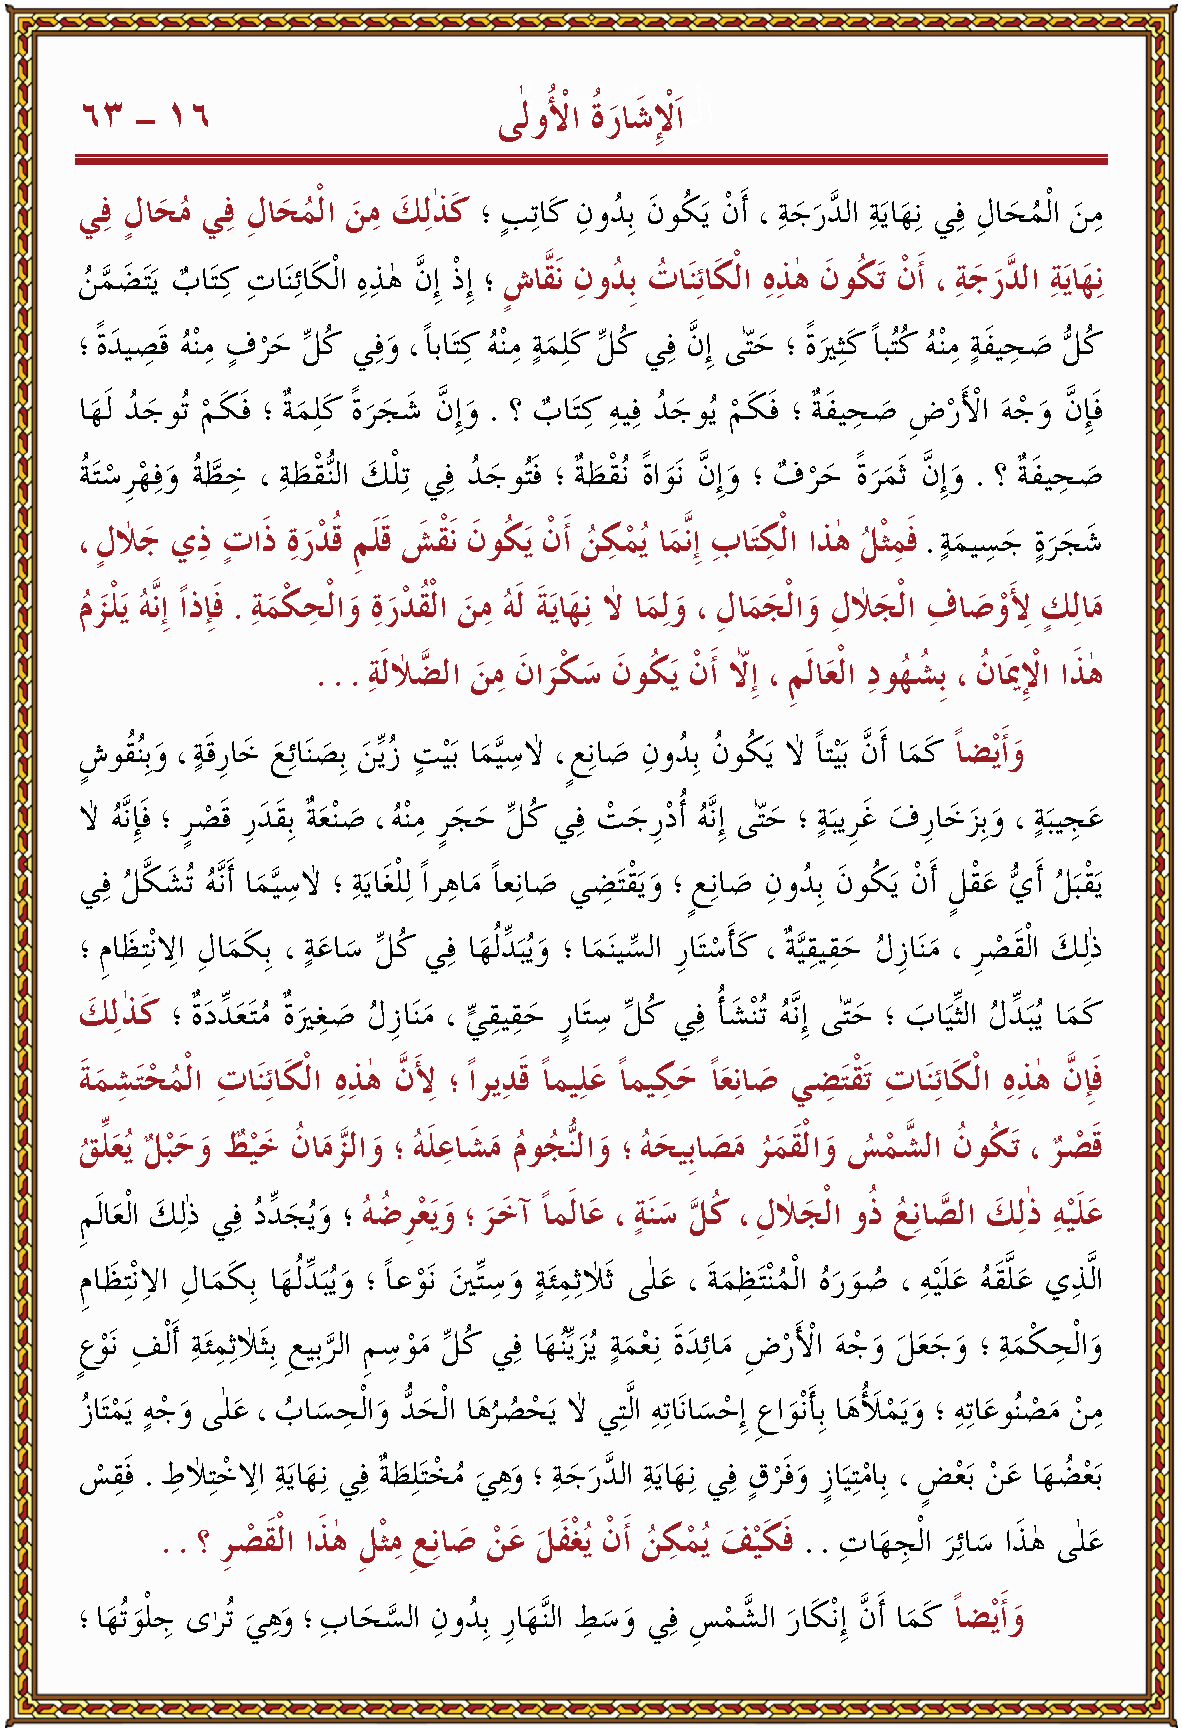 اَلْإِشَارَةُ الْأُولٰى ١٦ – ٦٣
مِنَ الْمُحَالِ فِي نِهَايَةِ الدَّرَجَةِ ، أَنْ يَكُونَ بِدُونِ كَاتِبٍ ؛ كَذٰلِكَ مِنَ الْمُحَالِ فِي مُحَالٍ فِي
نِهَايَةِ الدَّرَجَةِ ، أَنْ تَكُونَ هٰذِهِ الْكَائِنَاتُ بِدُونِ نَقَّاشٍ ؛ إِذْ إِنَّ هٰذِهِ الْكَائِنَاتِ كِتَابٌ يَتَضَمَّنُ
كُلُّ صَحِيفَةٍ مِنْهُ كُتُباً كَثِيرَةً ؛ حَتّٰى إِنَّ فِي كُلِّ كَلِمَةٍ مِنْهُ كِتَاباً ، وَفِي كُلِّ حَرْفٍ مِنْهُ قَصِيدَةً ؛
فَإِنَّ وَجْهَ الْأَرْضِ صَحِيفَةٌ ؛ فَكَمْ يُوجَدُ فِيهِ كِتَابٌ ؟ . وَإِنَّ شَجَرَةً كَلِمَةٌ ؛ فَكَمْ تُوجَدُ لَهَا
صَحِيفَةٌ ؟ . وَإِنَّ ثَمَرَةً حَرْفٌ ؛ وَإِنَّ نَوَاةً نُقْطَةٌ ؛ فَتُوجَدُ فِي تِلْكَ النُّقْطَةِ ، خِطَّةُ وَفِهْرِسْتَةُ
شَجَرَةٍ جَسِيمَةٍ . فَمِثْلُ هٰذَا الْكِتَابِ إِنَّمَا يُمْكِنُ أَنْ يَكُونَ نَقْشَ قَلَمِ قُدْرَةِ ذَاتٍ ذِي جَلَالٍ ،
مَالِكٍ لِأَوْصَافِ الْجَلَالِ وَالْجَمَالِ ، وَلِمَا لَا نِهَايَةَ لَهُ مِنَ الْقُدْرَةِ وَالْحِكْمَةِ . فَإِذاً إِنَّهُ يَلْزَمُ
هٰذَا الْإِيمَانُ ، بِشُهُودِ الْعَالَمِ ، إِلَّا أَنْ يَكُونَ سَكْرَانَ مِنَ الضَّلَالَةِ . . .
وَأَيْضاً كَمَا أَنَّ بَيْتاً لَا يَكُونُ بِدُونِ صَانِعٍ ، لَاسِيَّمَا بَيْتٍ زُيِّنَ بِصَنَائِعَ خَارِقَةٍ ، وَبِنُقُوشٍ
عَجِيبَةٍ ، وَبِزَخَارِفَ غَرِيبَةٍ ؛ حَتّٰى إِنَّهُ أُدْرِجَتْ فِي كُلِّ حَجَرٍ مِنْهُ ، صَنْعَةٌ بِقَدَرِ قَصْرٍ ؛ فَإِنَّهُ لَا
يَقْبَلُ أَيُّ عَقْلٍ أَنْ يَكُونَ بِدُونِ صَانِعٍ ؛ وَيَقْتَضِي صَانِعاً مَاهِراً لِلْغَايَةِ ؛ لَاسِيَّمَا أَنَّهُ تُشَكَّلُ فِي
ذٰلِكَ الْقَصْرِ ، مَنَازِلُ حَقِيقِيَّةٌ ، كَأَسْتَارِ السِّينَمَا ؛ وَيُبَدِّلُهَا فِي كُلِّ سَاعَةٍ ، بِكَمَالِ الِانْتِظَامِ ؛
كَمَا يُبَدِّلُ الثِّيَابَ ؛ حَتّٰى إِنَّهُ تُنْشَأُ فِي كُلِّ سِتَارٍ حَقِيقِيٍّ ، مَنَازِلُ صَغِيرَةٌ مُتَعَدِّدَةٌ ؛ كَذٰلِكَ
فَإِنَّ هٰذِهِ الْكَائِنَاتِ تَقْتَضِي صَانِعاً حَكِيماً عَلِيماً قَدِيراً ؛ لِأَنَّ هٰذِهِ الْكَائِنَاتِ الْمُحْتَشِمَةَ
قَصْرٌ ، تَكُونُ الشَّمْسُ وَالْقَمَرُ مَصَابِيحَهُ ؛ وَالنُّجُومُ مَشَاعِلَهُ ؛ وَالزَّمَانُ خَيْطٌ وَحَبْلٌ يُعَلِّقُ
عَلَيْهِ ذٰلِكَ الصَّانِعُ ذُو الْجَلَالِ ، كُلَّ سَنَةٍ ، عَالَماً آخَرَ ؛ وَيَعْرِضُهُ ؛ وَيُجَدِّدُ فِي ذٰلِكَ الْعَالَمِ
الَّذِي عَلَّقَهُ عَلَيْهِ ، صُوَرَهُ الْمُنْتَظِمَةَ ، عَلٰى ثَلَاثِمِئَةٍ وَسِتِّينَ نَوْعاً ؛ وَيُبَدِّلُهَا بِكَمَالِ الِانْتِظَامِ
وَالْحِكْمَةِ ؛ وَجَعَلَ وَجْهَ الْأَرْضِ مَائِدَةَ نِعْمَةٍ يُزَيِّنُهَا فِي كُلِّ مَوْسِمِ الرَّبِيعِ بِثَلَاثِمِئَةِ أَلْفِ نَوْعٍ
مِنْ مَصْنُوعَاتِهِ ؛ وَيَمْلَأُهَا بِأَنْوَاعِ إِحْسَانَاتِهِ الَّتِي لَا يَحْصُرُهَا الْحَدُّ وَالْحِسَابُ ، عَلٰى وَجْهٍ يَمْتَازُ
بَعْضُهَا عَنْ بَعْضٍ ، بِامْتِيَازٍ وَفَرْقٍ فِي نِهَايَةِ الدَّرَجَةِ ؛ وَهِيَ مُخْتَلِطَةٌ فِي نِهَايَةِ الِاخْتِلَاطِ . فَقِسْ
عَلٰى هٰذَا سَائِرَ الْجِهَاتِ . . فَكَيْفَ يُمْكِنُ أَنْ يُغْفَلَ عَنْ صَانِعِ مِثْلِ هٰذَا الْقَصْرِ ؟ . .
وَأَيْضاً كَمَا أَنَّ إِنْكَارَ الشَّمْسِ فِي وَسَطِ النَّهَارِ بِدُونِ السَّحَابِ ؛ وَهِيَ تُرٰى جِلْوَتُهَا ؛